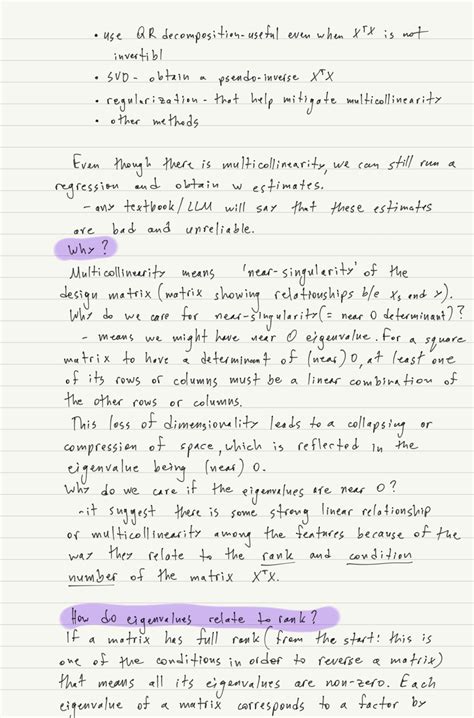 • use QR decomposition - useful even when XᵀX is not
invertibl
• SVD - obtain a pseudo-inverse XᵀX
• regularization - that help mitigate multicollinearity
• other methods
Even though there is multicollinearity, we can still run a
regression and obtain w estimates.
- any textbook/LLM will say that these estimates
are bad and unreliable.
Why?
Multicollinearity means 'near-singularity' of the
design matrix (matrix showing relationships b/e xs and y).
Why do we care for near-singularity (= near 0 determinant)?
- means we might have near 0 eigenvalue. For a square
matrix to have a determinant of (near) 0, at least one
of its rows or columns must be a linear combination of
the other rows or columns.
This loss of dimensionality leads to a collapsing or
compression of space, which is reflected in the
eigenvalue being (near) 0.
Why do we care if the eigenvalues are near 0?
- it suggest there is some strong linear relationship
or multicollinearity among the features because of the
way they relate to the rank and condition
number of the matrix XᵀX.
How do eigenvalues relate to rank?
If a matrix has full rank (from the start: this is
one of the conditions in order to reverse a matrix)
that means all its eigenvalues are non-zero. Each
eigenvalue of a matrix corresponds to a factor by